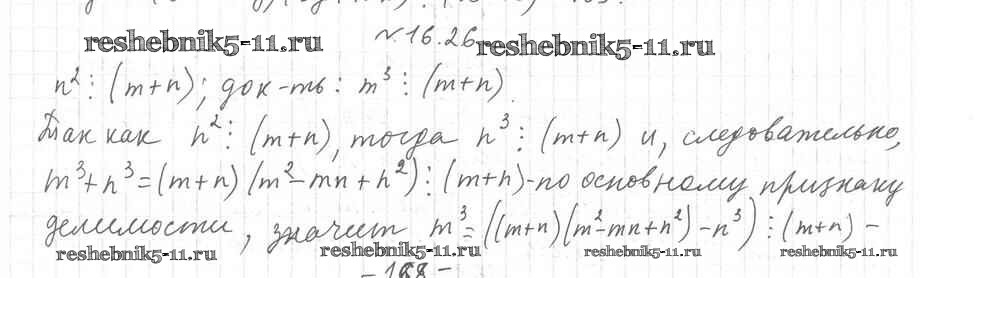 reshebnik5-11.ru №16.26 reshebnik5-11.ru
n²⋮(m+n); док-ть: m³⋮(m+n)
Так как n²⋮(m+n), тогда n³⋮(m+n) и, следовательно,
m³+n³=(m+n)(m²-mn+n²)⋮(m+n)-по основному признаку
делимости, значит m³=((m+n)(m²-mn+n²)-n³)⋮(m+n) -
reshebnik5-11.ru reshebnik5-11.ru reshebnik5-11.ru reshebnik5-11.ru